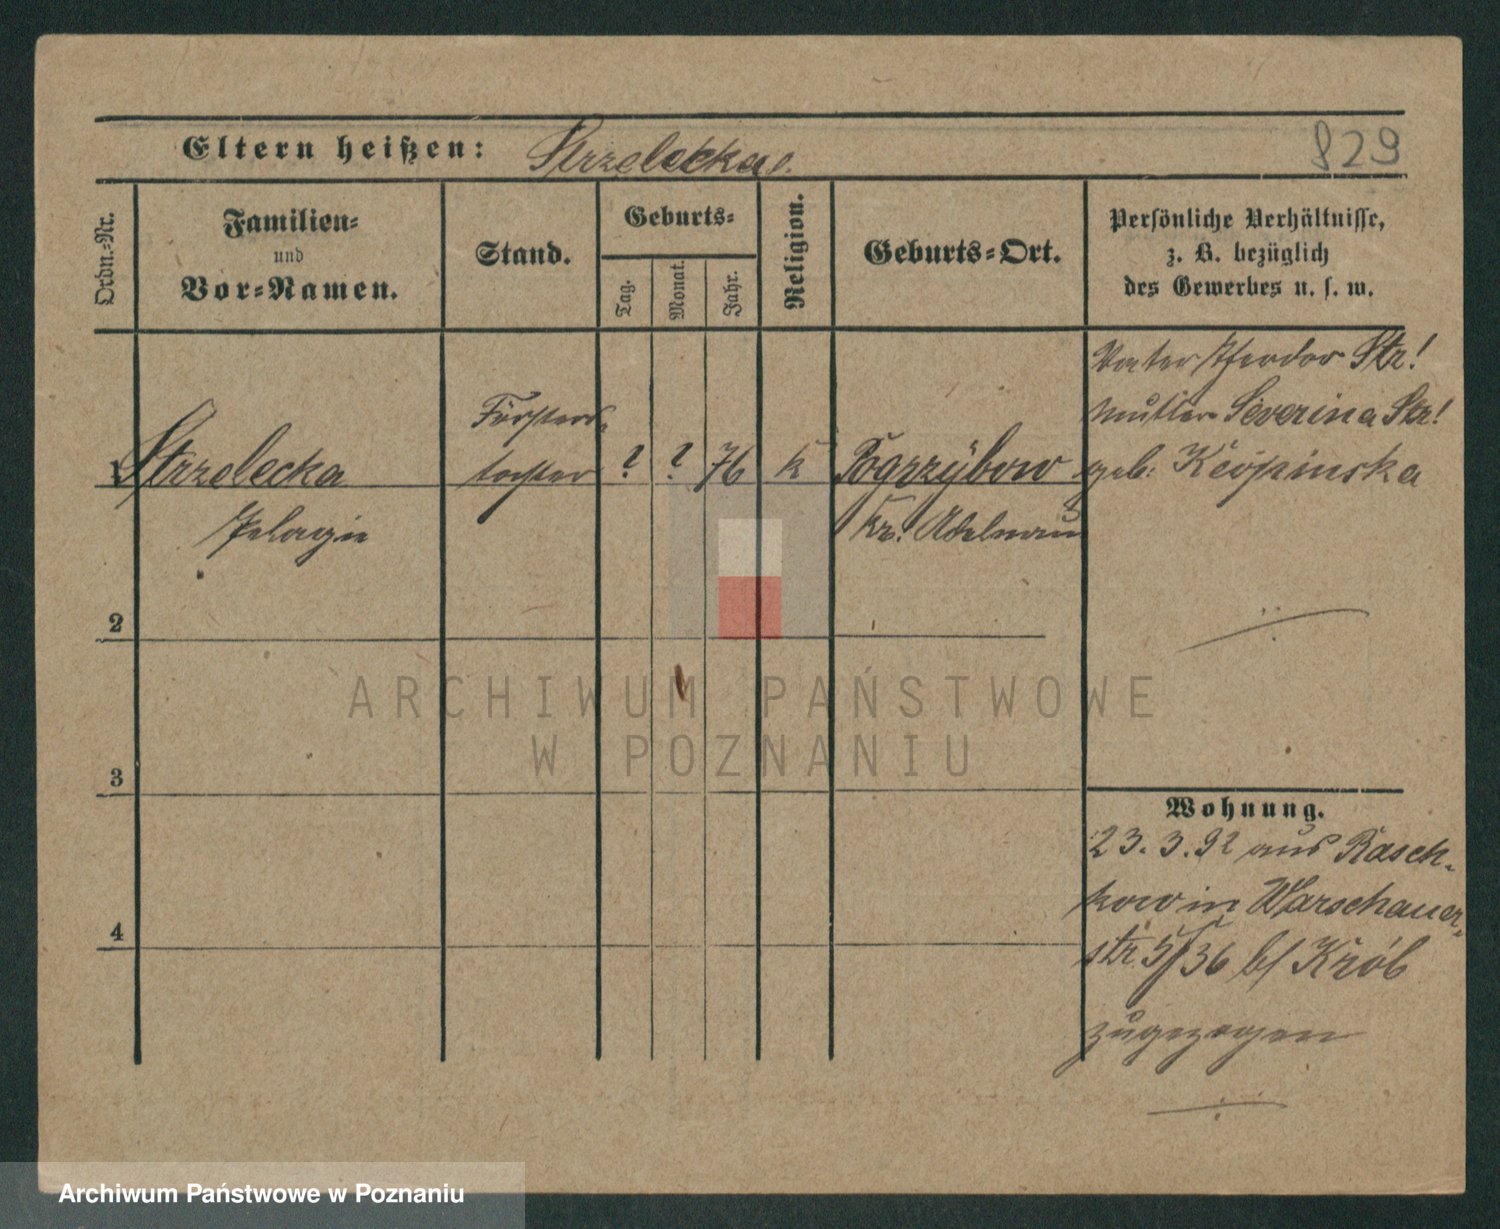 Eltern heißen: Strzelecka
829
Ordn.-Nr.
Familien-
und
Vor-Namen.
Stand.
Geburts-
Tag.
Monat.
Jahr.
Religion.
Geburts-Ort.
Persönliche Verhältnisse,
z. B. bezüglich
des Gewerbes u. s. w.
1
Strzelecka
Pelagie
Försters-
tochter
?
?
76
K
Pogrzÿbow
Kr. Adelnau
Vater Theodor Str!
Mutter Severina Str!
geb:
2
3
4
Wohnung.
23.3.92 aus Rasch-
kow in Warschauer-
str 5/36 b/ Król
zugezogen
ARCHIWUM PAŃSTWOWE
W POZNANIU
Archiwum Państwowe w Poznaniu